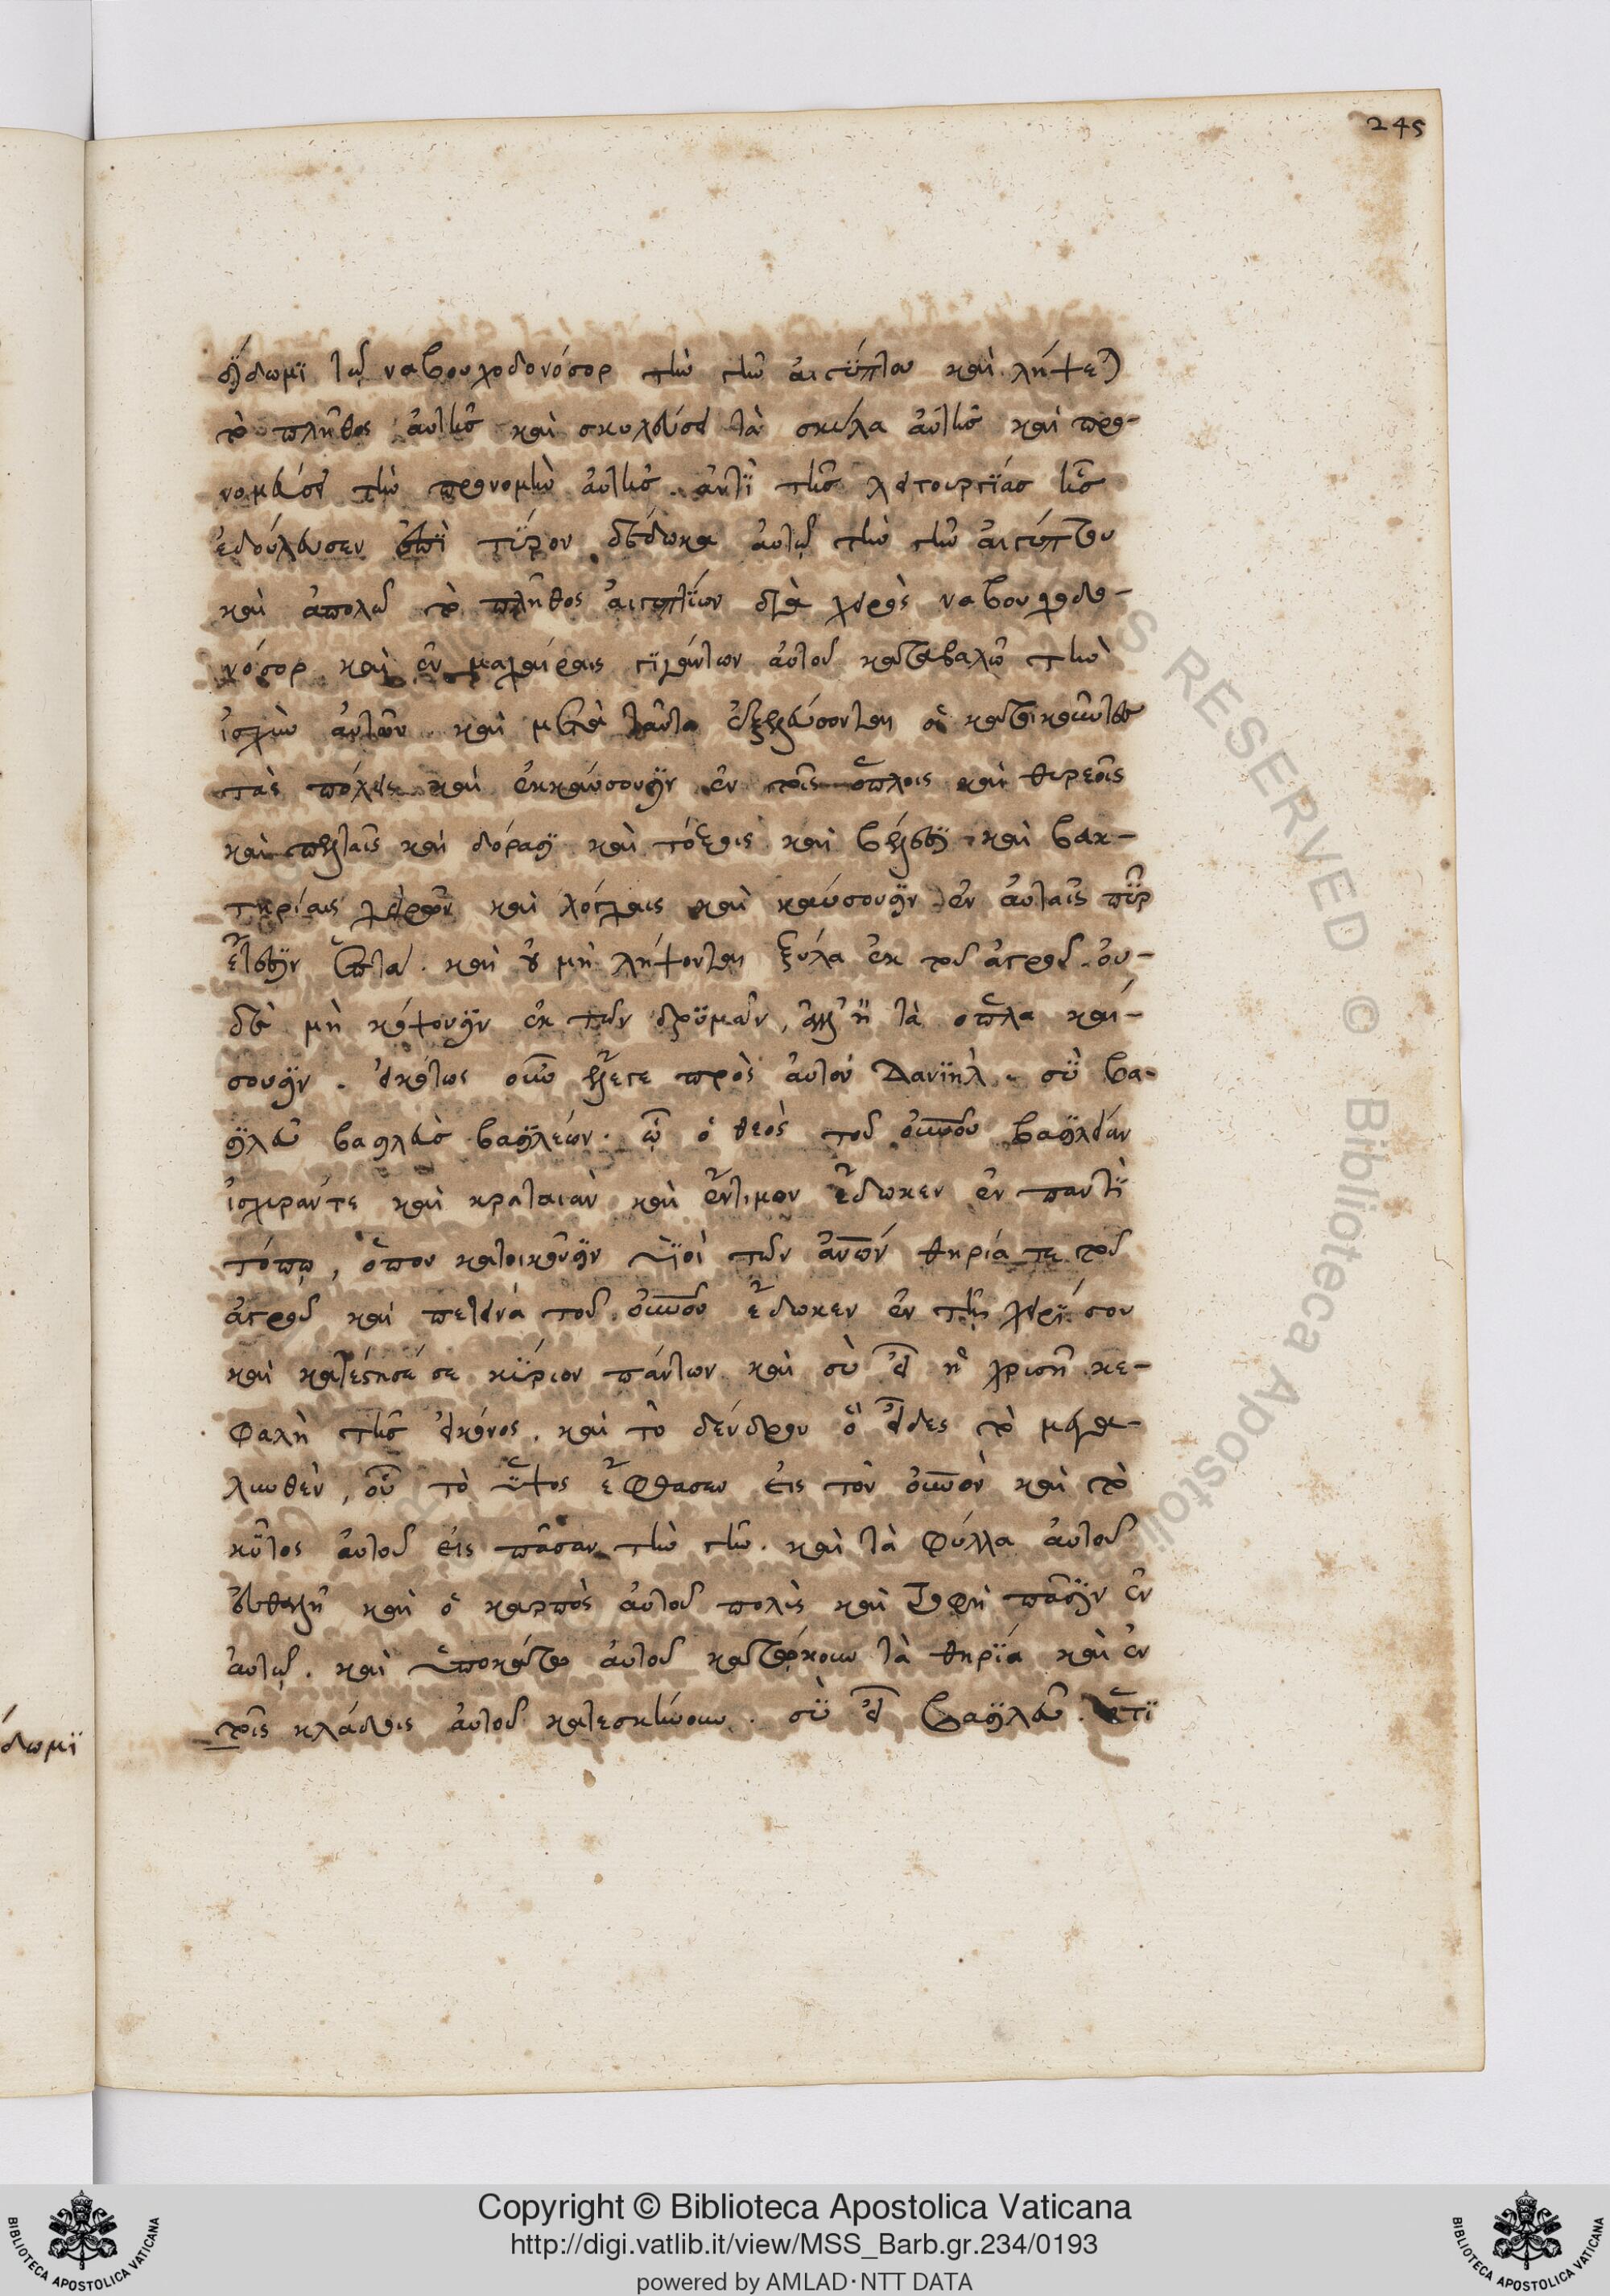 245
δίδωμϊ τῶ ναβουχοδονόσορ τὴν γῆν αἰγύπτου καὶ λήψεται
τὸ πλῆθος αὐτῆς καὶ σκυλεύσει τὰ σκύλα αὐτῆς καὶ προ-
νομεύσει τὴν προνομὴν αὐτῆς. ἀντῒ τῆς λειτουργΐας ἧς
ἐδούλευσεν ἐπῒ τύρον δέδωκα αὐτῶ τὴν γῆν αἰγύπτου
καὶ ἀπολῶ τὸ πλῆθος αἰγυπτΐων διὰ χειρὸς ναβουχοδο-
νόσορ καὶ ἐν μαχαίραις γιγάντων αὐτοῦ καταβαλῶ τὴν
ἰσχὺν αὐτῶν. καὶ μετὰ ταῦτα ἐξελεύσονται οἱ κατοικοῦντες
τὰς πόλεις καὶ ἐκκαύσουσϊν ἐν τοῖς ὅπλοις καὶ θυρεοῖς
καὶ πελταῖς καὶ δόρασϊ καὶ τόξοις καὶ βέλεσϊ. καὶ βακ-
τηρίαις χειρῶν καὶ λόγχαις καὶ καύσουσϊν ἐν αὐταῖς πῦρ
ἔτεσϊν ἑπτά. καὶ οὐ μὴ λήψονται ξύλα ἐκ τοῦ ἀγροῦ. οὐ-
δὲ μὴ κόψουσϊν ἐκ τῶν δρϋμῶν, ἀλλ' ἢ τὰ ὅπλα καύ-
σουσϊν. εἰκότως οὖν ἔλεγε πρὸς αὐτὸν Δανϊὴλ. σὺ βα-
σϊλεῦ βασιλεὺς βασϊλέων. ὧ ὁ θεὸς τοῦ οὐνοῦ βασϊλείαν
ἰσχυράν τε καὶ κραταιὰν καὶ ἔντιμον ἔδωκεν ἐν παντῒ
τόπω, ὅπου κατοικοῦσϊν ϋἱοὶ τῶν ἀνων θηρία τε τοῦ
ἀγροῦ καὶ πετεινά τοῦ οὐνοῦ ἔδωκεν ἐν τῆ χειρΐ σου
καὶ κατέστησέ σε κύριον πάντων καὶ σὺ εἶ ἡ χρυσῆ κε-
φαλὴ τῆς εἰκόνος. καὶ τὸ δένδρον ὃ εἶδες τὸ μεγα-
λυνθὲν, οὗ τὸ ὕψος ἔφθασεν εἰς τὸν οὐνὸν καὶ τὸ
κῦτος αὐτοῦ εἰς πᾶσαν τὴν γῆν. καὶ τὰ φύλλα αὐτοῦ
εὐθαλῆ καὶ ὁ καρπὸς αὐτοῦ πολὺς καὶ τροφὴ πᾶσϊν ἐν
αὐτῶ. καὶ ὑποκάτω αὐτοῦ κατώκουν τὰ θηρΐα καὶ ἐν
τοῖς κλάδοις αὐτοῦ κατεσκήνουν. σὺ εἶ βασϊλεῦ. ὅτϊ
δωμϊ
S RESERVED © Biblioteca Apostolic
Copyright © Biblioteca Apostolica Vaticana
http://digi.vatlib.it/view/MSS_Barb.gr.234/0193
powered by AMLAD·NTT DATA
BIBLIOTECA APOSTOLICA VATICANA
BIBLIOTECA APOSTOLICA VATICANA